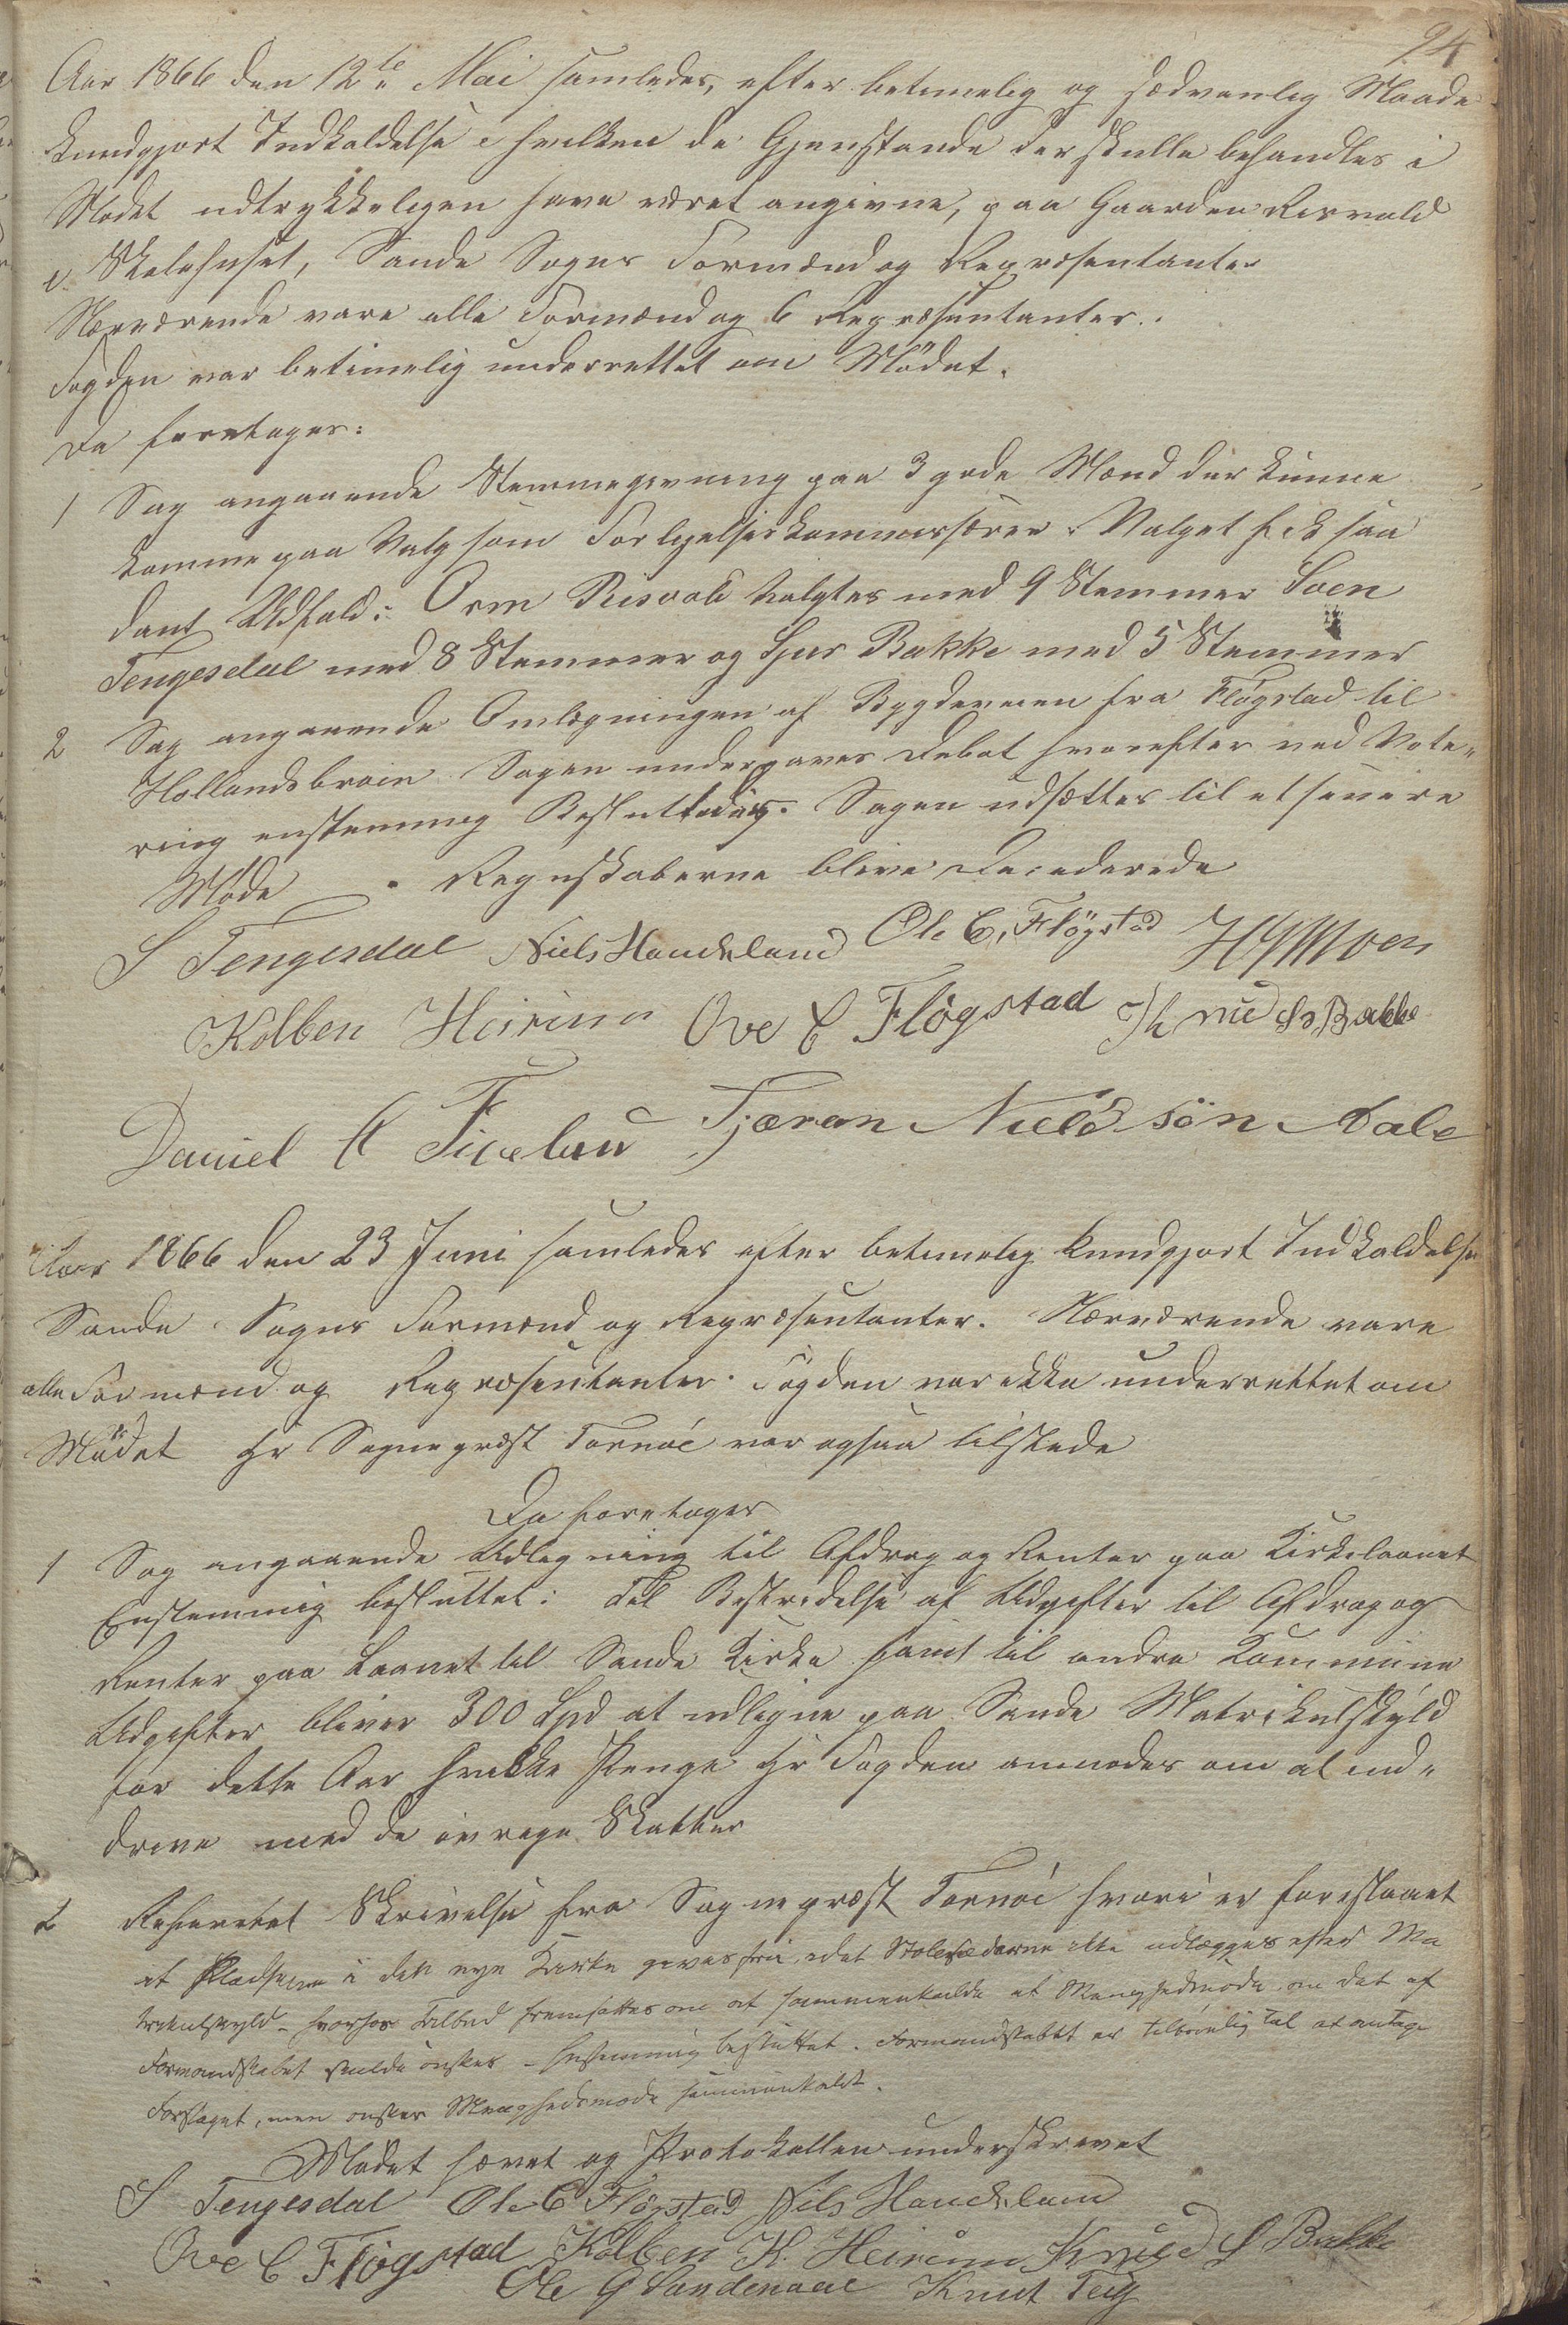 94
Aar 1866 den 12te Mai samledes, efter betimelig og sædvanlig Maade
kundgjort Indkaldelse i hvilken de Gjenstande der skulle behandles i
Mødet udtrykkeligen have været angivne, paa Gaarden Risvold
i Skolehuset, Sande Sogns Formænd og Repræsentanter
Nærværende vare alle Formænd og 6 Repræsentanter.
Fogden var betimelig underrettet om Mødet.
Da foretoges:
1 Sag angaaende Stemmegivning paa 3 gode Mænd der kunne
komme paa Valg som Forligelseskommissærer. Valget fik saa
dant Udfald: Orm Risvold valgtes med 9 Stemmer Soen
Tengesdal med 8 Stemmer og Sjur Bakke med 5 Stemmer
2 Sag angaaende Omlægningen af Bygdeveien fra Fløgstad til
Hollandsbroen. Sagen undergaves Debat hvorefter ved Vote„
ring enstemmig Besluttedes. Sagen udsættes til et senere
Møde. Regnskaberne blive Deciderede
S Tengesdal Niels Handeland Ole C. Fløgstad
Kolben Heirum Ove C Fløgstad Knud S. Bakke
Daniel A Tjæran Nielssøn Dale
Aar 1866 den 23 Juni samledes efter betimelig kundgjort Indkaldelse
Sande Sogns Formænd og Repræsentanter. Nærværende vare
alle Formænd og Repræsentanter. Fogden var ikke underrettet om
Mødet Hr Sogneprest Tornøe var ogsaa tilstede
Da foretoges
1 Sag angaaende Udligning til Afdrag og Renter paa Kirkelaanet
Enstemmig besluttet: Til Bestridelse af Udgifter til Afdrag og
Renter paa Laanet til Sande Kirke samt til andre Kommune
Udgifter bliver 300 Spd at udligne paa Sande Matrikulskyld
for dette Aar hvilke Penge Hr Fogden anmodes om at ind„
drive med de øvrige Skatter
2 Refereret Skrivelse fra Sogneprest Tornøe hvori er foreslaaet
at Pladsene i den nye Kirke gives fri, idet Stolesæderne ikke udlægges efter Ma
trikulskyld - hvorhos Tilbud fremsættes om at sammenkalde et Menighedsmøde om det af
Formandskabet skulde ønskes - Enstemmig besluttet. Formandskabet er tilbøielig til at antage
Forslaget, men ønsker Menighedsmøde sammenkaldt.
Mødet hævet og Protokollen underskrevet
S Tengesdal Ole C Fløgstad Nils Handeland
Ove C Fløgstad Kolben K. Heirum Knud S Bakke
Ole G Sandenaae Knut Teig